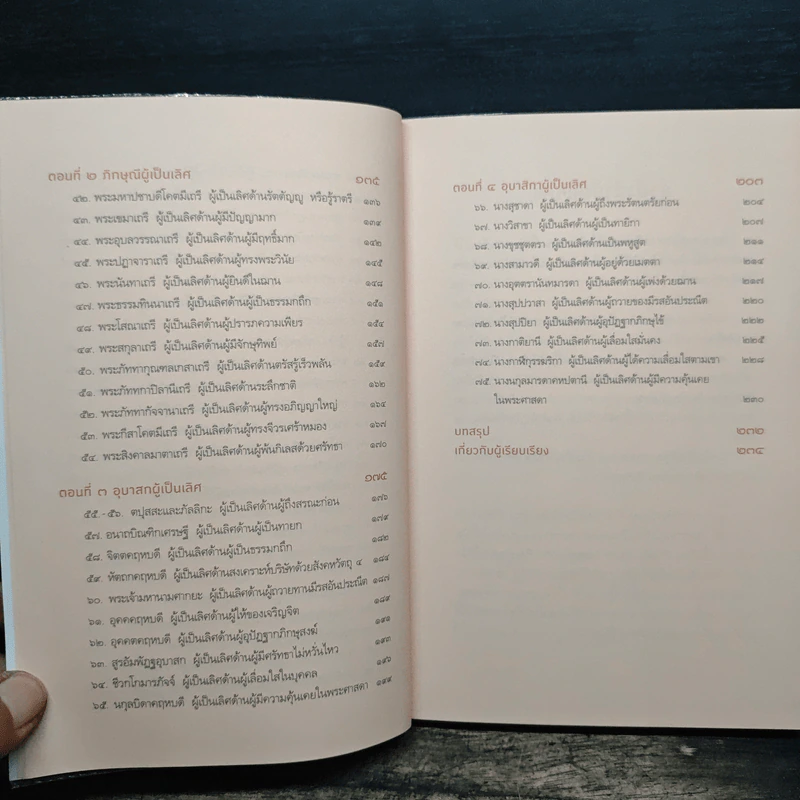 ตอนที่ ๒ ภิกษุณีผู้เป็นเลิศ ๑๓๕
๔๒. พระมหาปชาบดีโคตมีเถรี ผู้เป็นเลิศด้านรัตตัญญู หรือรู้ราตรี ๑๓๖
๔๓. พระเขมาเถรี ผู้เป็นเลิศด้านผู้มีปัญญามาก ๑๓๙
๔๔. พระอุบลวรรณาเถรี ผู้เป็นเลิศด้านผู้มีฤทธิ์มาก ๑๔๒
๔๕. พระปฏาจาราเถรี ผู้เป็นเลิศด้านผู้ทรงพระวินัย ๑๔๕
๔๖. พระนันทาเถรี ผู้เป็นเลิศด้านผู้ยินดีในฌาน ๑๔๘
๔๗. พระธรรมทินนาเถรี ผู้เป็นเลิศด้านผู้เป็นธรรมกถึก ๑๕๑
๔๘. พระโสณาเถรี ผู้เป็นเลิศด้านผู้ปรารภความเพียร ๑๕๔
๔๙. พระสกุลาเถรี ผู้เป็นเลิศด้านผู้มีจักษุทิพย์ ๑๕๗
๕๐. พระภัททากุณฑลเกสาเถรี ผู้เป็นเลิศด้านตรัสรู้เร็วพลัน ๑๕๙
๕๑. พระภัททกาปิลานีเถรี ผู้เป็นเลิศด้านระลึกชาติ ๑๖๒
๕๒. พระภัททากัจจานาเถรี ผู้เป็นเลิศด้านผู้ทรงอภิญญาใหญ่ ๑๖๔
๕๓. พระกีสาโคตมีเถรี ผู้เป็นเลิศด้านผู้ทรงจีวรเศร้าหมอง ๑๖๗
๕๔. พระสิงคาลมาตาเถรี ผู้เป็นเลิศด้านผู้พ้นกิเลสด้วยศรัทธา ๑๗๐
ตอนที่ ๓ อุบาสกผู้เป็นเลิศ ๑๗๕
๕๕.-๕๖. ตปุสสะและภัลลิกะ ผู้เป็นเลิศด้านผู้ถึงสรณะก่อน ๑๗๖
๕๗. อนาถบิณฑิกเศรษฐี ผู้เป็นเลิศด้านผู้เป็นทายก ๑๗๙
๕๘. จิตตคฤหบดี ผู้เป็นเลิศด้านผู้เป็นธรรมกถึก ๑๘๑
๕๙. หัตถกคฤหบดี ผู้เป็นเลิศด้านสงเคราะห์บริษัทด้วยสังคหวัตถุ ๔ ๑๘๔
๖๐. พระเจ้ามหานามศากยะ ผู้เป็นเลิศด้านผู้ถวายทานมีรสอันประณีต ๑๘๗
๖๑. อุคคคฤหบดี ผู้เป็นเลิศด้านผู้ให้ของเจริญจิต ๑๘๙
๖๒. อุคคตคฤหบดี ผู้เป็นเลิศด้านผู้อุปัฏฐากภิกษุสงฆ์ ๑๙๑
๖๓. สูรอัมพัฏฐอุบาสก ผู้เป็นเลิศด้านผู้มีศรัทธาไม่หวั่นไหว ๑๙๓
๖๔. ชีวกโกมารภัจจ์ ผู้เป็นเลิศด้านผู้เลื่อมใสในบุคคล ๑๙๖
๖๕. นกุลบิดาคฤหบดี ผู้เป็นเลิศด้านผู้มีความคุ้นเคยในพระศาสดา ๑๙๙
ตอนที่ ๔ อุบาสิกาผู้เป็นเลิศ ๒๐๓
๖๖. นางสุชาดา ผู้เป็นเลิศด้านผู้ถึงพระรัตนตรัยก่อน ๒๐๔
๖๗. นางวิสาขา ผู้เป็นเลิศด้านผู้เป็นทายิกา ๒๐๗
๖๘. นางขุชชุตตรา ผู้เป็นเลิศด้านเป็นพหูสูต ๒๑๑
๖๙. นางสามาวดี ผู้เป็นเลิศด้านผู้อยู่ด้วยเมตตา ๒๑๔
๗๐. นางอุตตรานันทมารดา ผู้เป็นเลิศด้านผู้เพ่งด้วยฌาน ๒๑๗
๗๑. นางสุปปวาสา ผู้เป็นเลิศด้านผู้ถวายของมีรสอันประณีต ๒๒๐
๗๒. นางสุปปิยา ผู้เป็นเลิศด้านผู้อุปัฏฐากภิกษุไข้ ๒๒๒
๗๓. นางกาติยานี ผู้เป็นเลิศด้านผู้เลื่อมใสมั่นคง ๒๒๕
๗๔. นางกาฬีกุรรฆริกา ผู้เป็นเลิศด้านผู้ได้ความเลื่อมใสตามเขา ๒๒๘
๗๕. นางนกุลมารดาคหปตานี ผู้เป็นเลิศด้านผู้มีความคุ้นเคย
ในพระศาสดา ๒๓๐
บทสรุป ๒๓๒
เกี่ยวกับผู้เรียบเรียง ๒๓๔